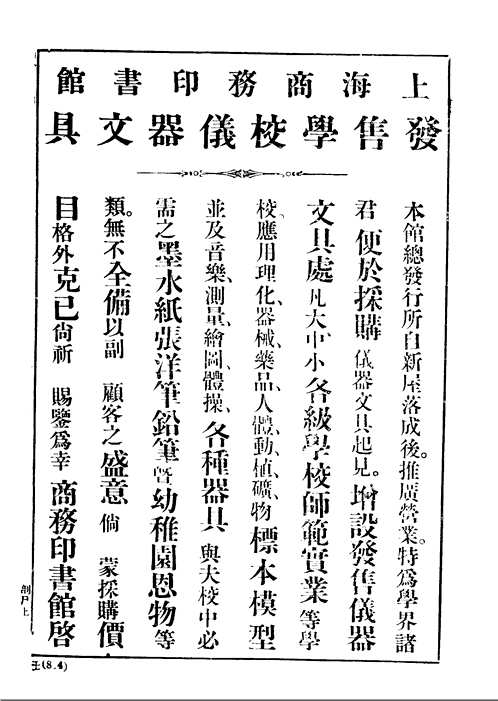 上海商務印書館
發售學校儀器文具
本館總發行所自新屋落成後。推廣營業。特爲學界諸
君 便於採購 儀器文具起見。增設發售儀器
文具處 凡大中小各級學校師範實業等學
校、應用理化、器械、藥品、人體、動、植、礦、物 標本模型
並及音樂、測量、繪圖、體操、各種器具 與夫校中必
需之墨水紙張洋筆鉛筆暨幼稚園恩物等
類。無不全備以副 顧客之盛意 倘 蒙採購價
目格外克己尙祈 賜鑒爲幸 商務印書館啓
(8.4)